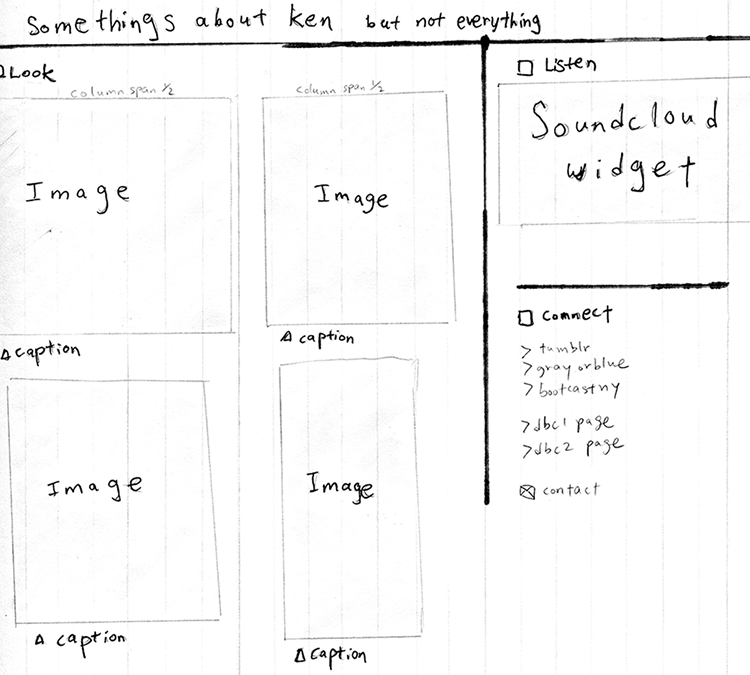 Some things about ken but not everything
Look
column span 1/2
Image
caption
Image
caption
column span 1/2
Image
caption
Image
caption
Listen
Soundcloud
widget
Connect
> tumblr
> gray orblue
> bootcastny
> dbc1 page
> dbc2 page
contact